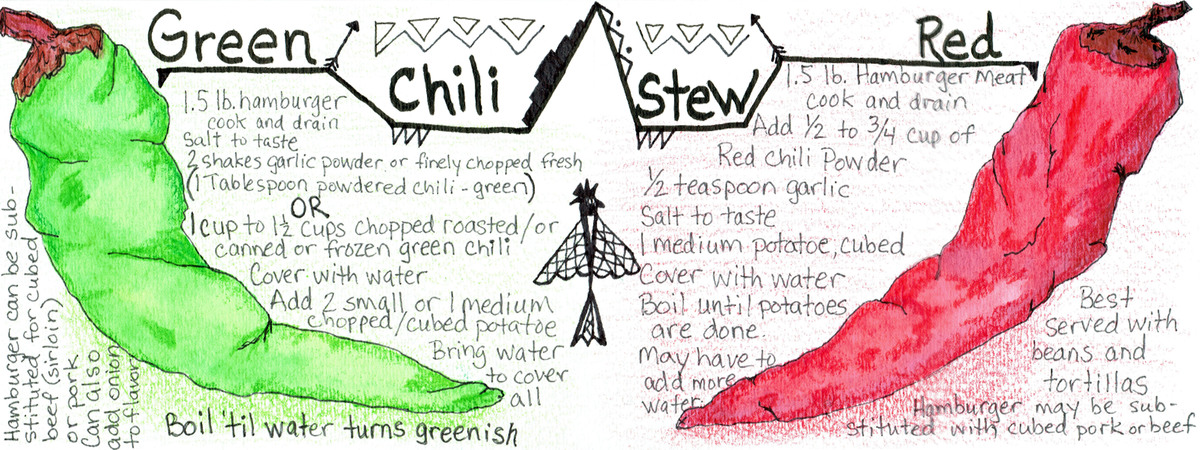 Green
Chili
Stew
Red
1.5 lb. hamburger
cook and drain
Salt to taste
2 shakes garlic powder or finely chopped fresh
(1 Tablespoon powdered chili - green)
OR
1 cup to 1½ cups chopped roasted/or
canned or frozen green chili
Cover with water
Add 2 small or 1 medium
chopped/cubed potatoe
Bring water
to cover
all
Boil 'til water turns greenish
Hamburger can be sub-
stituted for cubed
beef (sirloin)
or pork
Can also
add onion
to flavor
1.5 lb. Hamburger Meat
cook and drain
Add ½ to ¾ cup of
Red Chili Powder
½ teaspoon garlic
Salt to taste
1 medium potatoe, cubed
Cover with water
Boil until potatoes
are done.
May have to
add more
water.
Best
served with
beans and
tortillas
Hamburger may be sub-
stituted with cubed pork or beef